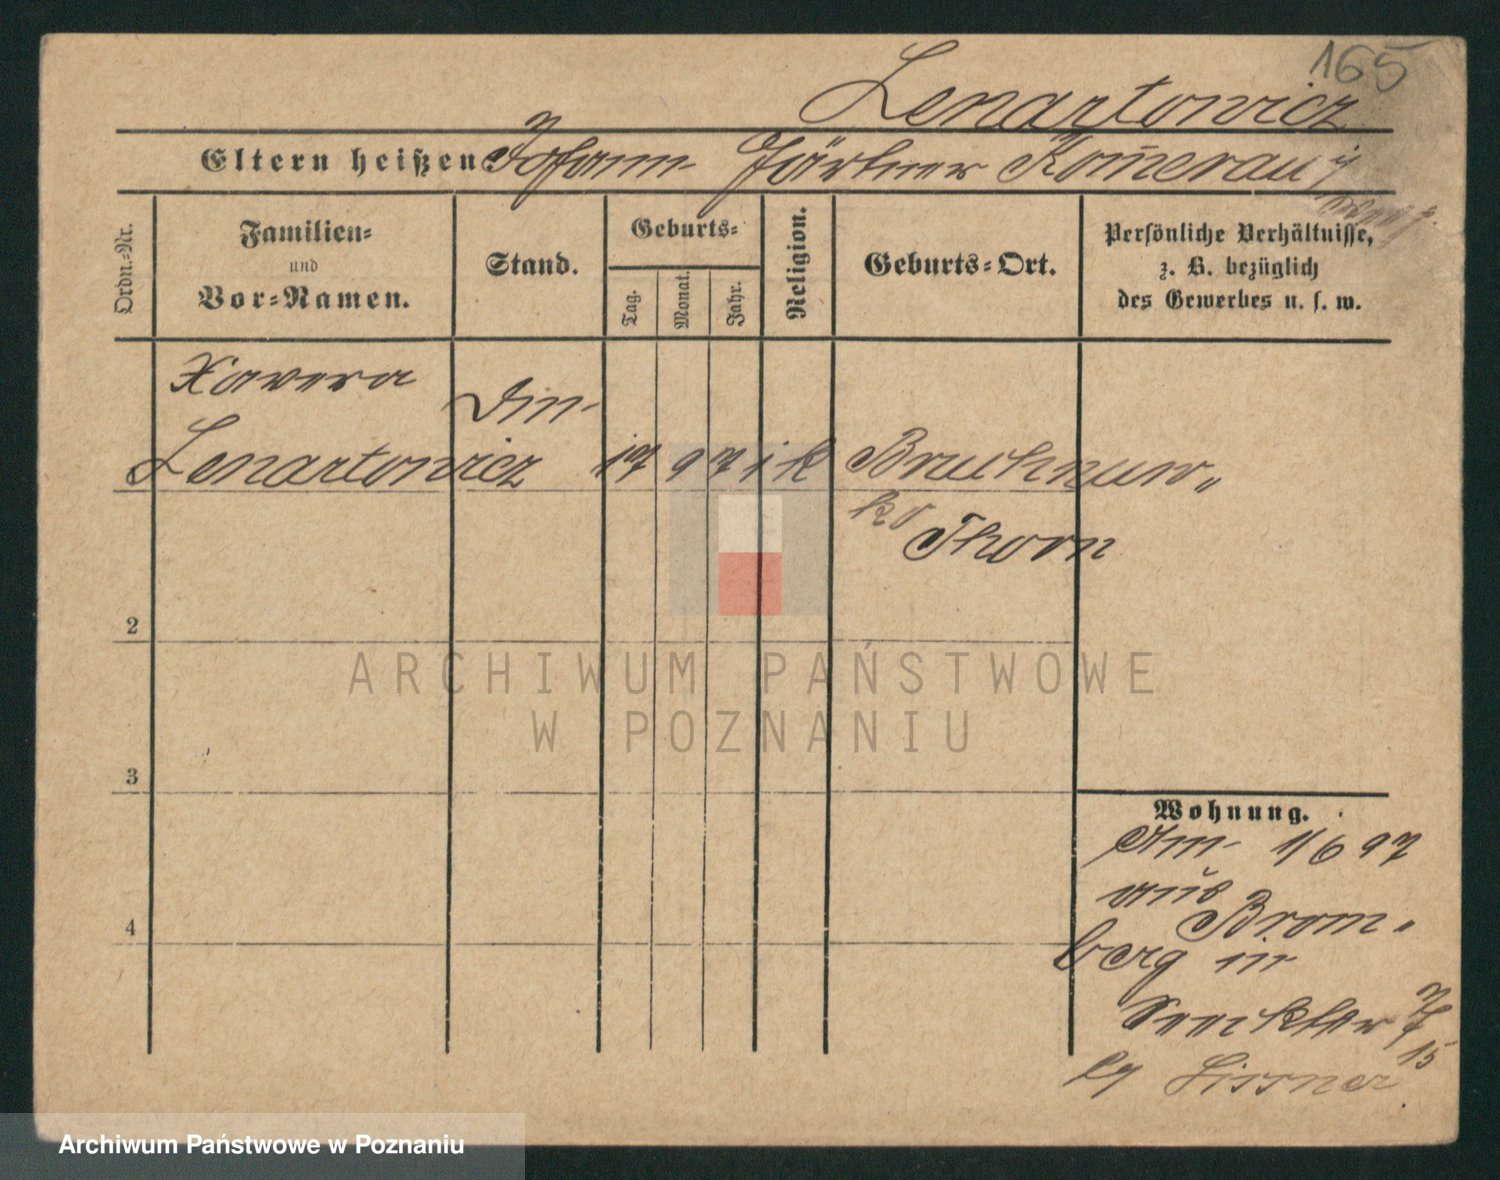 165
Lenartowicz
Eltern heißen Johann Gärtner
Ordn.-Nr.
Familien-
und
Vor-Namen.
Stand.
Geburts-
Tag.
Monat.
Jahr.
Religion.
Geburts-Ort.
Persönliche Verhältnisse,
z. B. bezüglich
des Gewerbes u. s. w.
Xavera
Lenartowicz
Din
17 9 71 k
kr Thorn
2
3
4
Wohnung.
Am 1/6 97
aus
Brom-
berg in
15
b/ Lissner
ARCHIWUM PAŃSTWOWE
W POZNANIU
Archiwum Państwowe w Poznaniu